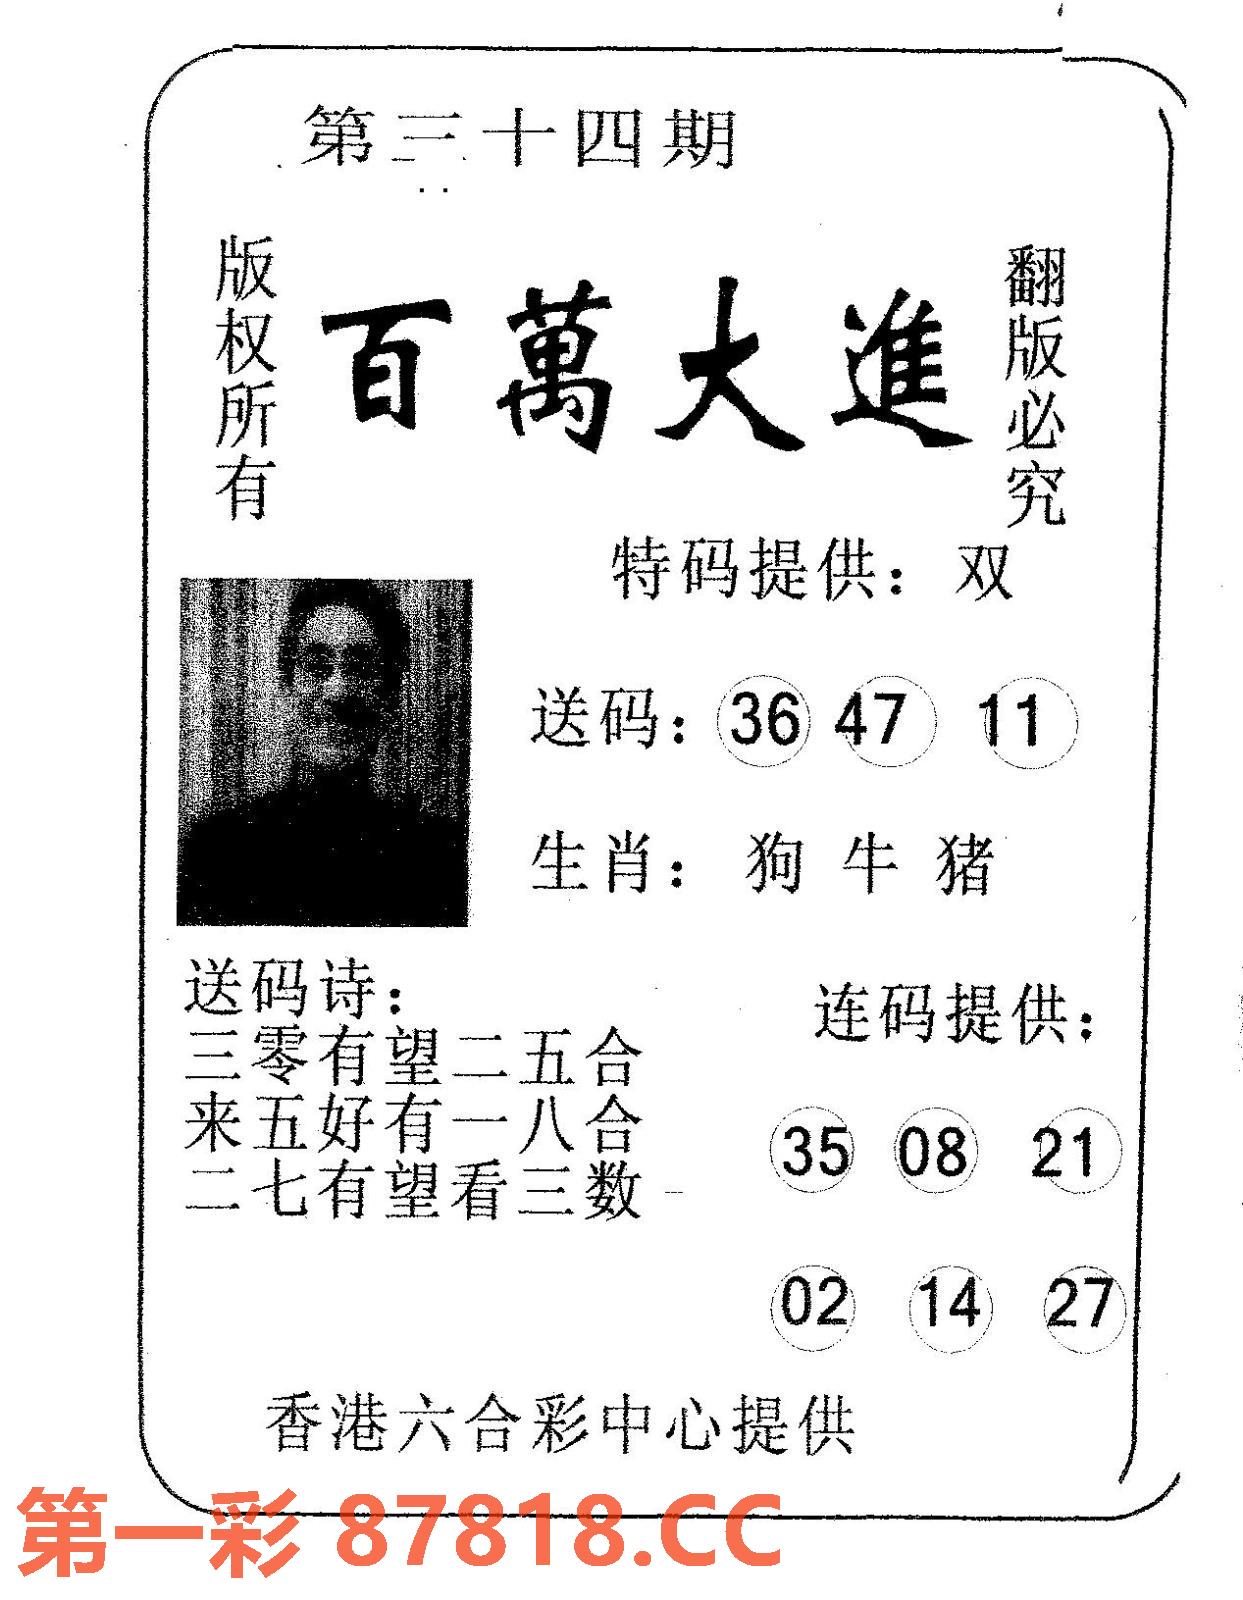 第三十四期
版权所有
百萬大進
翻版必究
特码提供：双
送码：36 47 11
生肖：狗 牛 猪
送码诗：
三零有望二五合
来五好有一八合
二七有望看三数
连码提供：
35 08 21
02 14 27
香港六合彩中心提供
第一彩 87818.CC